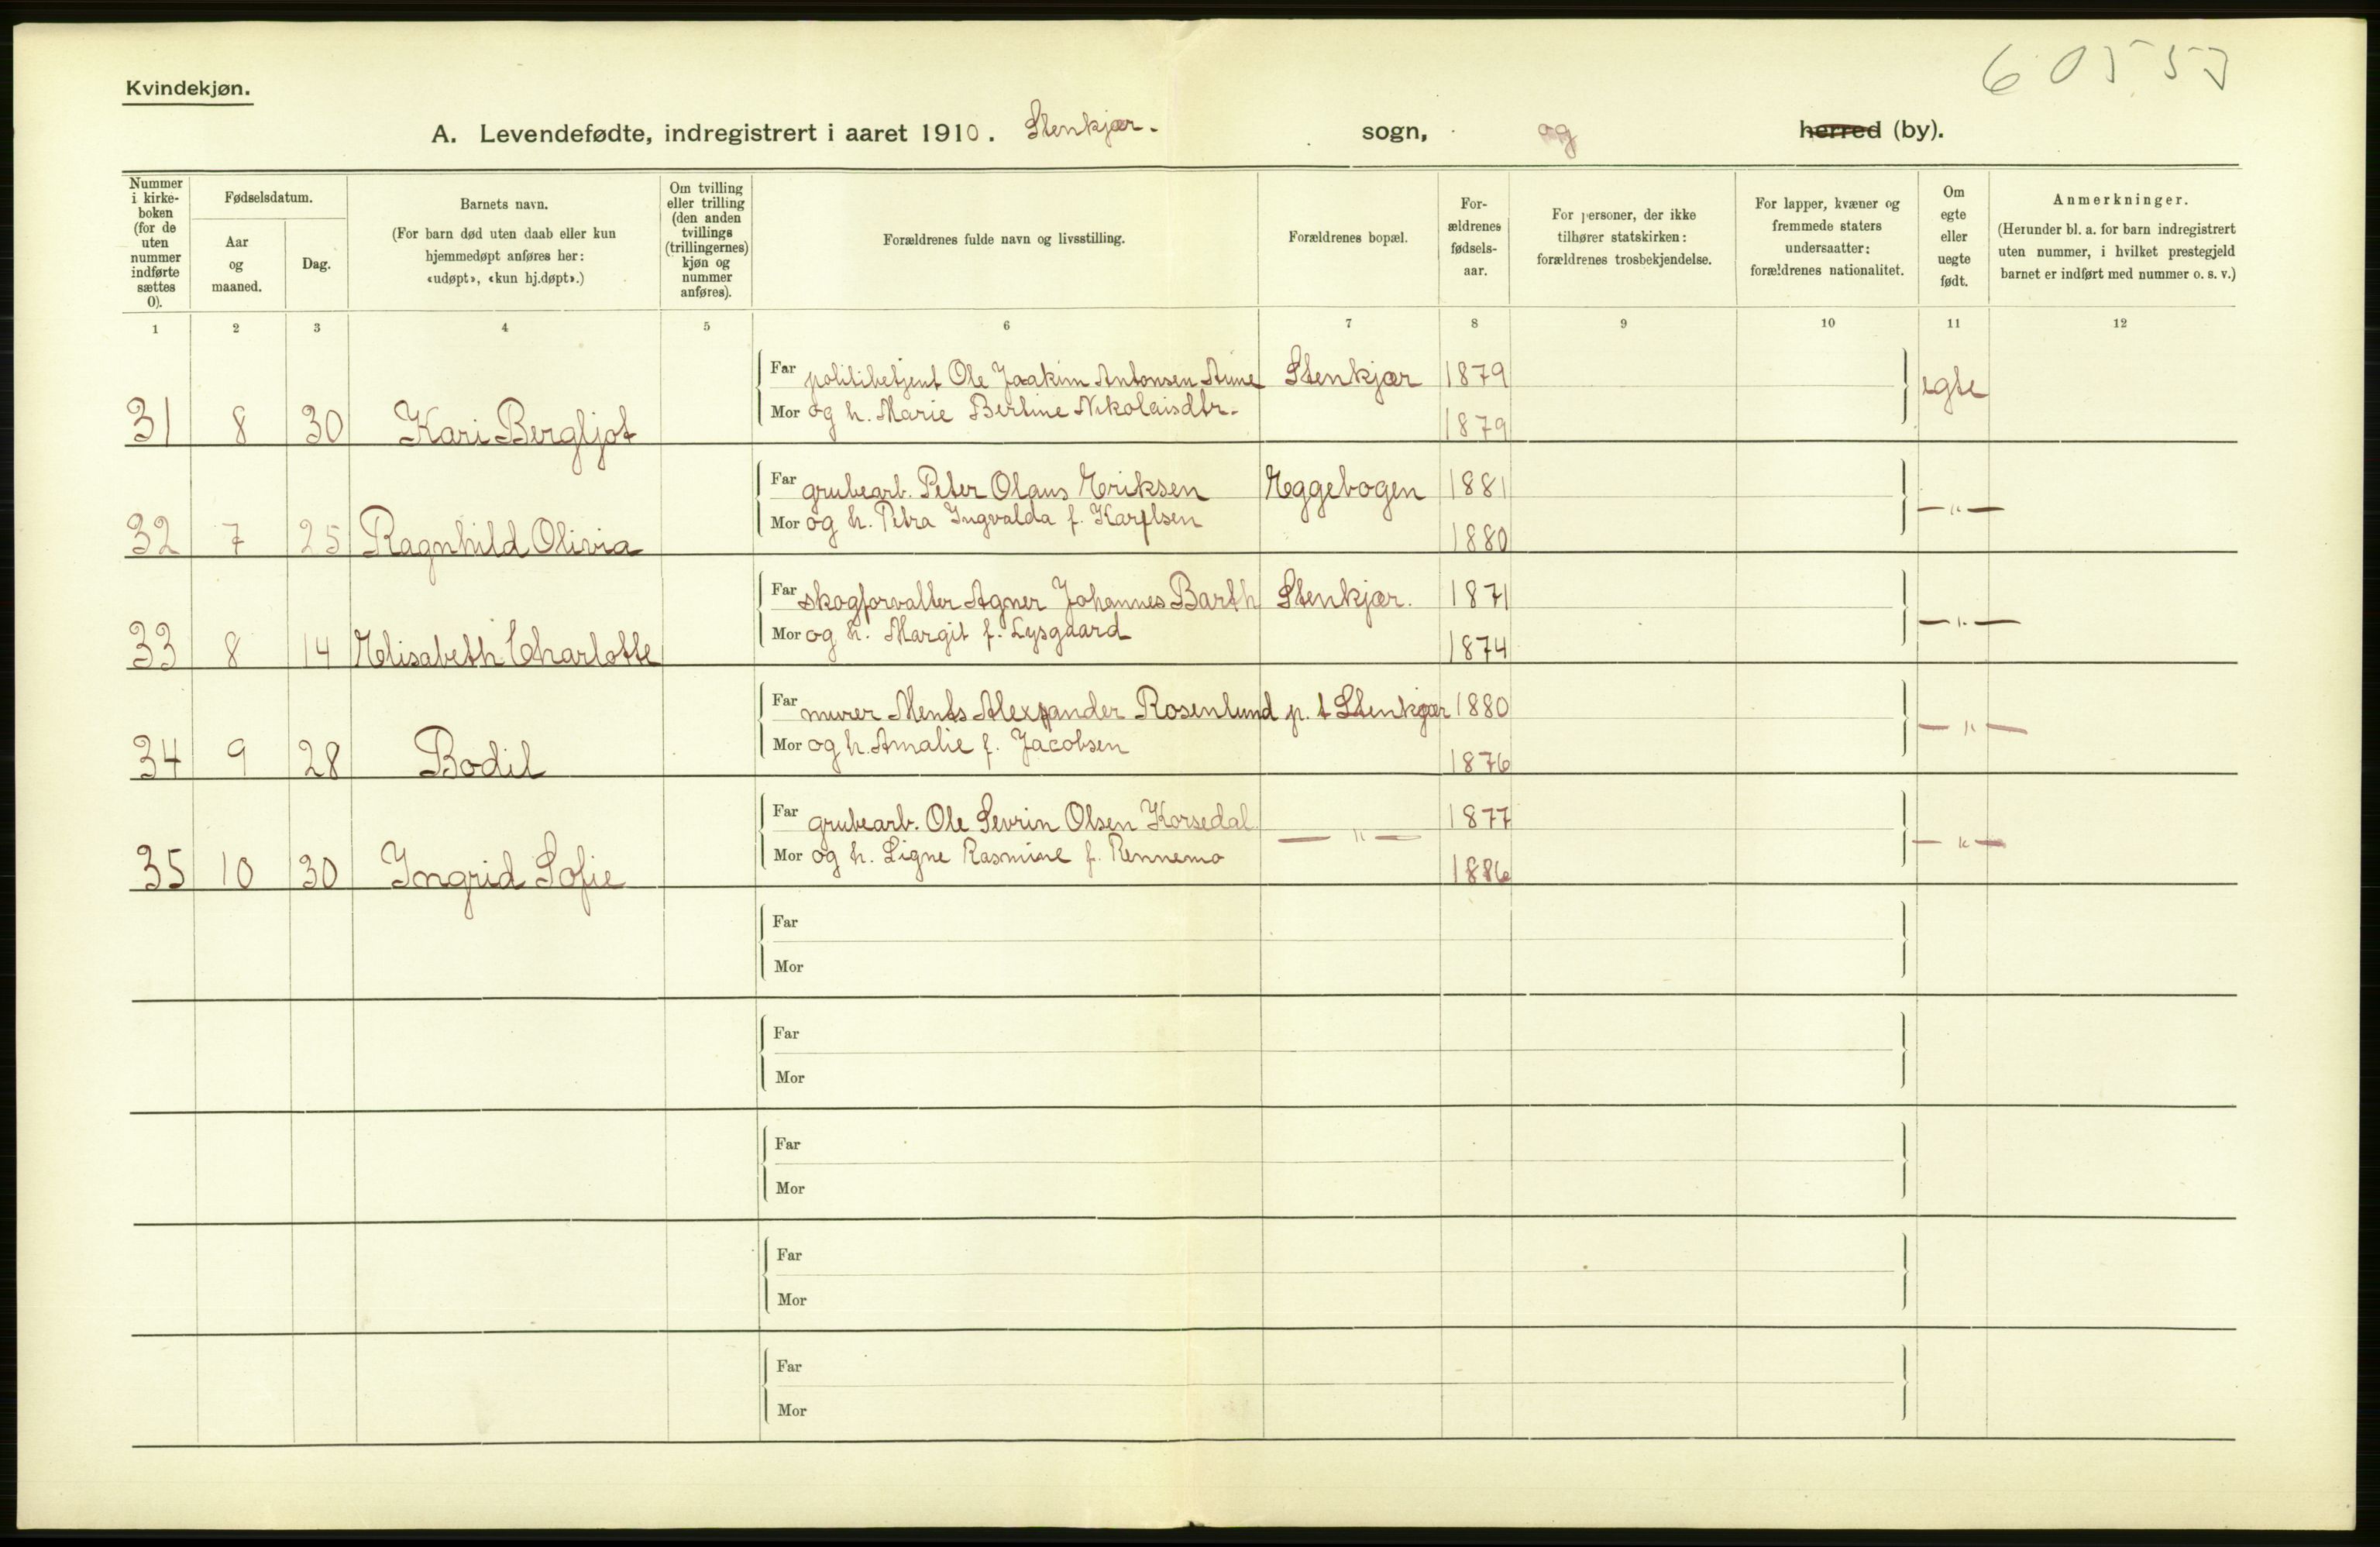 60553
Kvindekjøn.
A. Levendefødte, indregistrert i aaret 1910. Stenkjær. sogn, og herred (by).
Nummer i kirke-boken (for de uten nummer indførte sættes 0).
Fødselsdatum.
Aar og maaned.
Dag.
Barnets navn.
(For barn død uten daab eller kun hjemmedøpt anføres her: «udøpt», «kun hj.døpt».)
Om tvilling eller trilling (den anden tvillings (trillingernes) kjøn og nummer anføres).
Forældrenes fulde navn og livsstilling.
Forældrenes bopæl.
For-ældrenes fødsels-aar.
For personer, der ikke tilhører statskirken: forældrenes trosbekjendelse.
For lapper, kvæner og fremmede staters undersaatter: forældrenes nationalitet.
Om egte eller uegte født.
Anmerkninger.
(Herunder bl. a. for barn indregistrert uten nummer, i hvilket prestegjeld barnet er indført med nummer o. s. v.)
1 2 3 4 5 6 7 8 9 10 11 12
Far politibetjent Ole Joakim Antonsen Aune Stenkjær 1879 egte
Mor og h. Marie Bertine Nikolaisdtr. 1879
31 8 30 Kari Bergljot
Far grubearb. Peter Olaus Eriksen Eggebogen 1881 — " —
Mor og h. Petra Ingvalda f. Karlsen 1880
32 7 25 Ragnhild Olivia
Far skogforvalter Agner Johannes Barth Stenkjær. 1871 — " —
Mor og h. Margit f. Lysgaard 1874
33 8 14 Elisabeth Charlotte
Far murer Ments Alexander Rosenlund p. t Stenkjær 1880 — " —
Mor og h. Amalie f. Jacobsen 1876
34 9 28 Bodil
Far grubearb. Ole Sevrin Olsen Korsedal — " — 1877 — " —
Mor og h. Signe Rasmine f. Rennemo 1886
35 10 30 Ingrid Sofie
Far
Mor
Far
Mor
Far
Mor
Far
Mor
Far
Mor